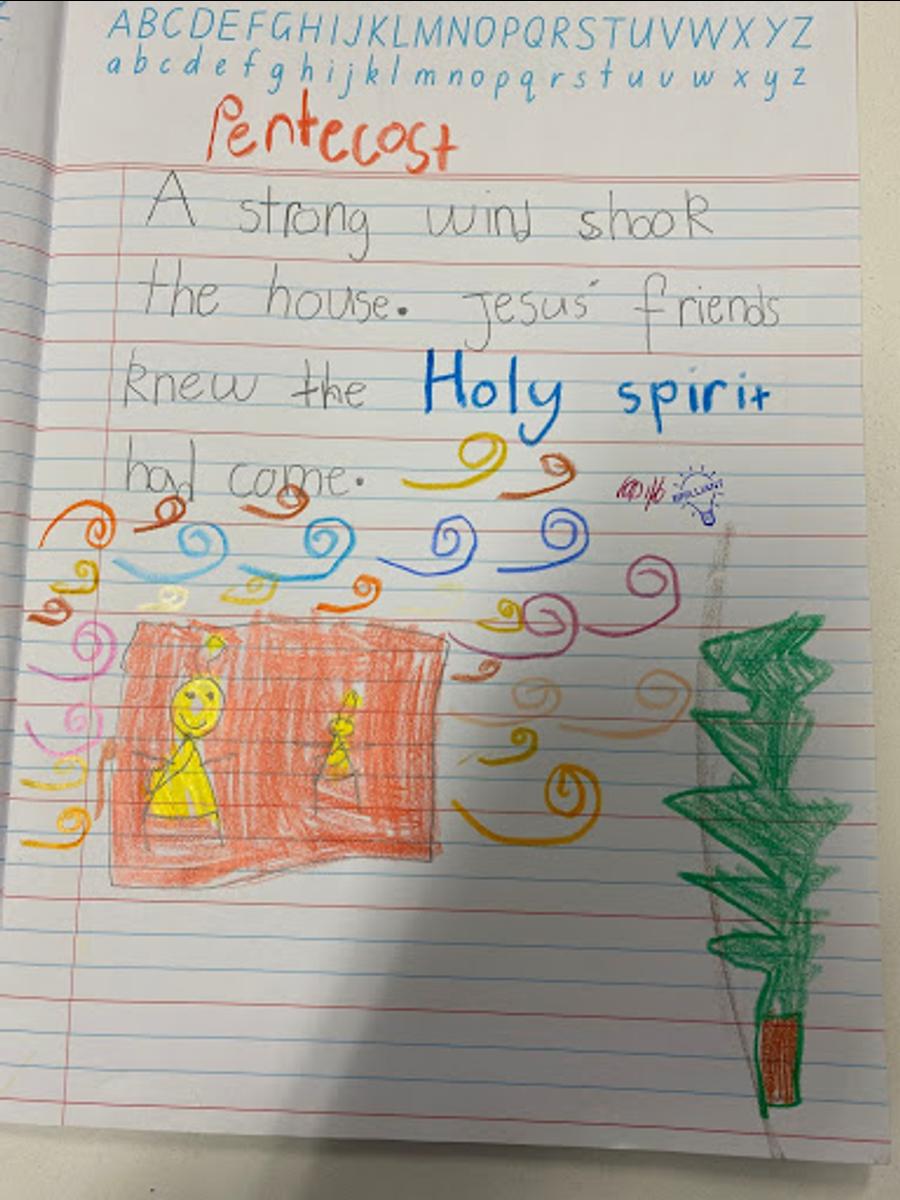 ABCDEFGHIJKLMNOPQRSTUVWXYZ
abcdefghijklmnopqrstuvwxyz
Pentecost
A strong wind shook
the house. Jesus' friends
knew the Holy spirit
had come.
BRILLIANT